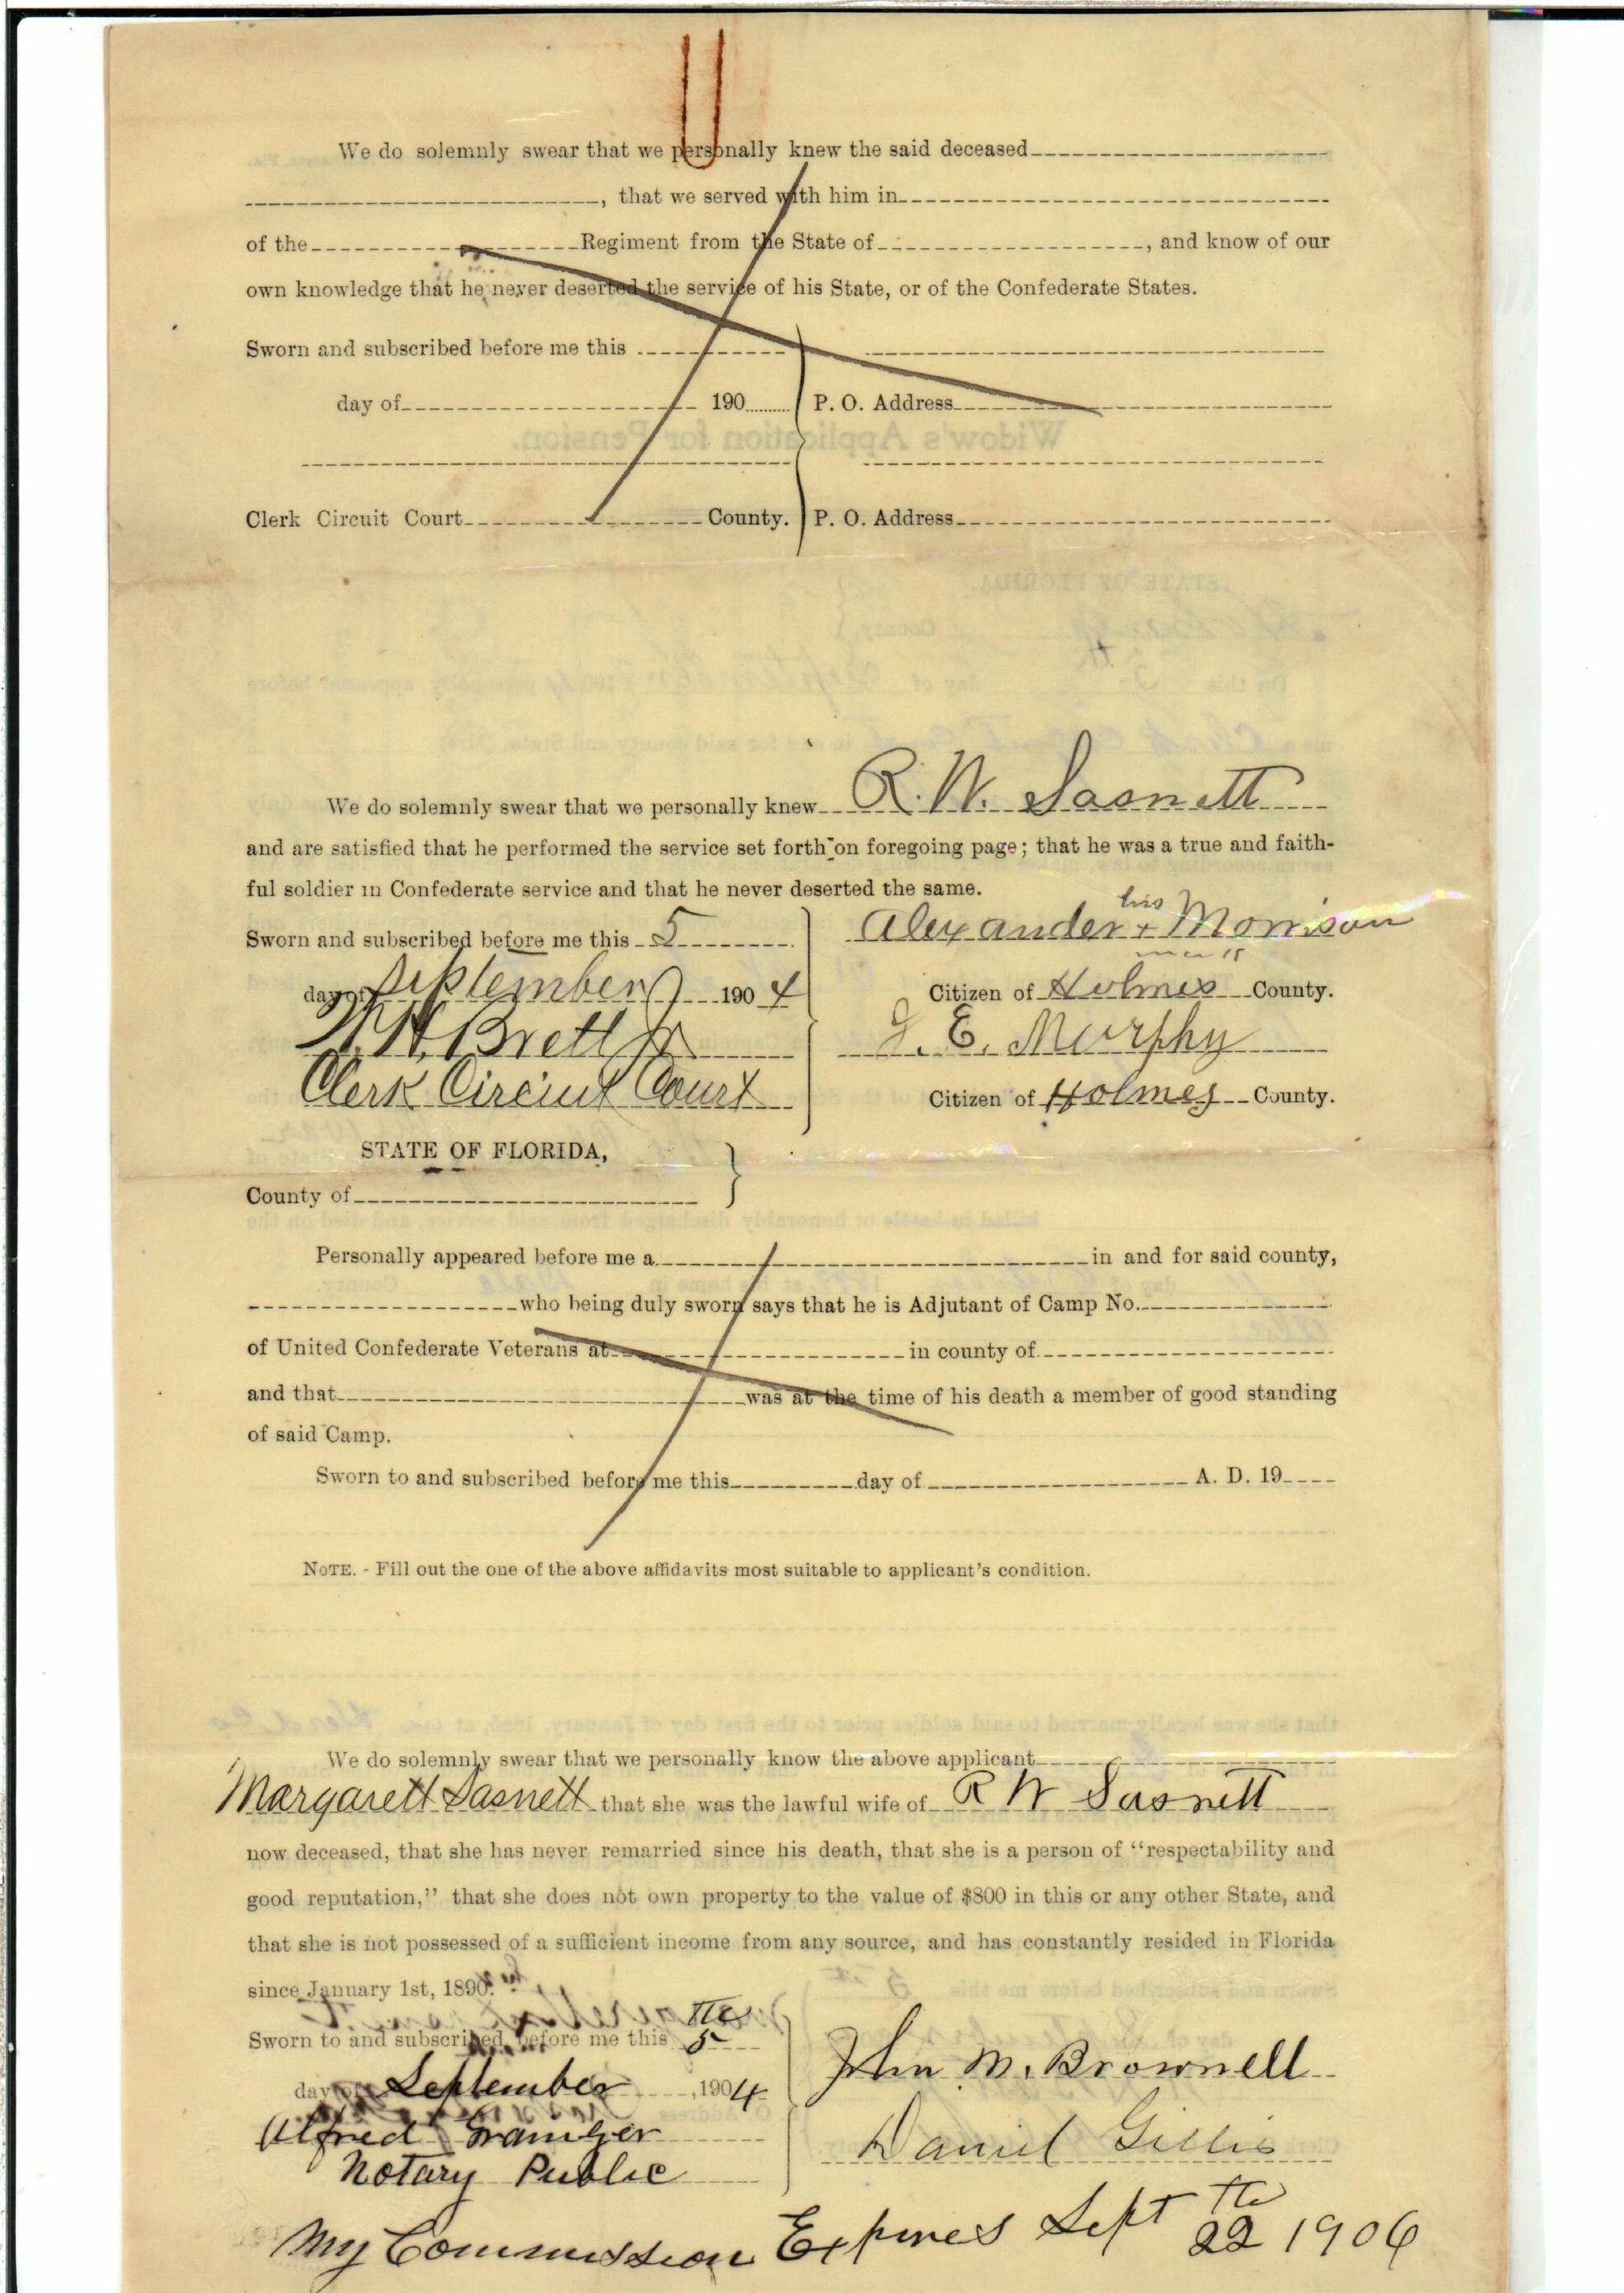 We do solemnly swear that we personally knew the said deceased
, that we served with him in
of the Regiment from the State of , and know of our
own knowledge that he never deserted the service of his State, or of the Confederate States.
Sworn and subscribed before me this
day of 190
P. O. Address
Widow's Application for Pension.
Clerk Circuit Court County.
P. O. Address
STATE OF FLORIDA.
We do solemnly swear that we personally knew R. W. Sasnett
and are satisfied that he performed the service set forth on foregoing page; that he was a true and faith-
ful soldier in Confederate service and that he never deserted the same.
Sworn and subscribed before me this 5
day of September 1904
W. H. Brett Jr
Clerk Circuit Court
his
Alexander + Morrison
mark
Citizen of Holmes County.
J. E. Murphy
Citizen of Holmes County.
STATE OF FLORIDA,
County of
Personally appeared before me a in and for said county,
who being duly sworn says that he is Adjutant of Camp No.
of United Confederate Veterans at in county of
and that was at the time of his death a member of good standing
of said Camp.
Sworn to and subscribed before me this day of A. D. 19
NOTE. - Fill out the one of the above affidavits most suitable to applicant's condition.
We do solemnly swear that we personally know the above applicant
Margarett Sasnett that she was the lawful wife of R W Sasnett
now deceased, that she has never remarried since his death, that she is a person of "respectability and
good reputation," that she does not own property to the value of $800 in this or any other State, and
that she is not possessed of a sufficient income from any source, and has constantly resided in Florida
since January 1st, 1890.
Sworn to and subscribed before me this 5 the
day of September, 1904
Alfred Grainger
Notary Public
John M. Brownell
Daniel Gillis
My Commission Expires Sept 22 the 1906